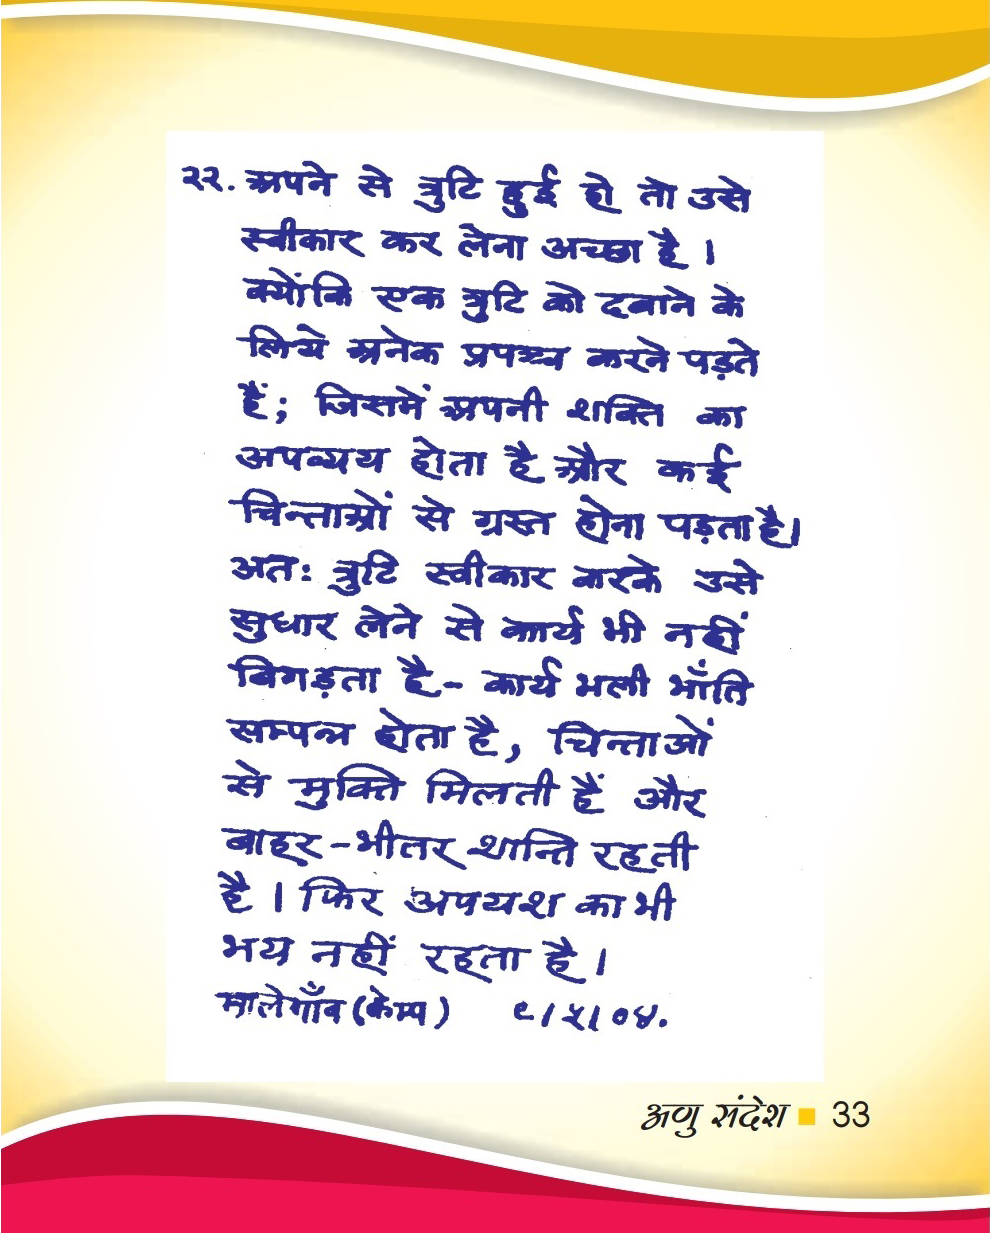 २२. अपने से त्रुटि हुई हो तो उसे
स्वीकार कर लेना अच्छा है ।
क्योंकि एक त्रुटि को दबाने के
लिये अनेक प्रपञ्च करने पड़ते
हैं; जिसमें अपनी शक्ति का
अपव्यय होता है और कई
चिन्ताओं से ग्रस्त होना पड़ता है।
अतः त्रुटि स्वीकार करके उसे
सुधार लेने से कार्य भी नहीं
बिगड़ता है- कार्य भली भाँति
सम्पन्न होता है, चिन्ताओं
से मुक्ति मिलती हैं और
बाहर-भीतर शान्ति रहती
है । फिर अपयश का भी
भय नहीं रहता है ।
मालेगाँव (केम्प) ९।५।०४.
अणु संदेश ■ 33